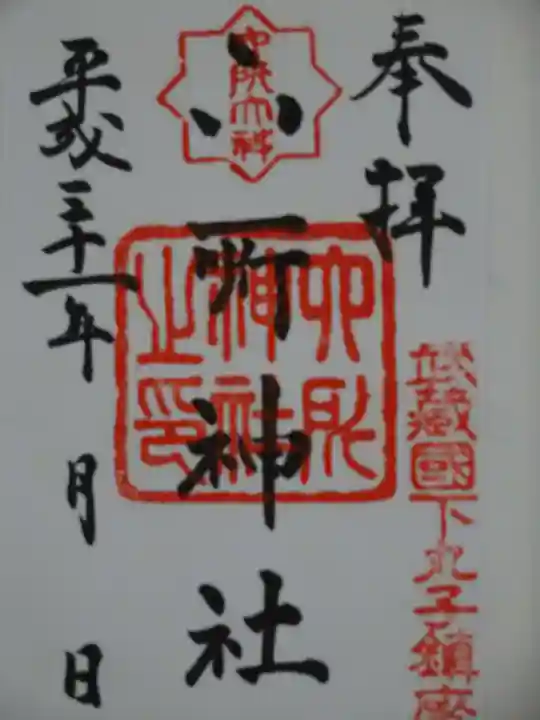 奉拝
武蔵國下丸子鎮座
六所神社
六所神社之印
六所大神
平成三十一年 月 日